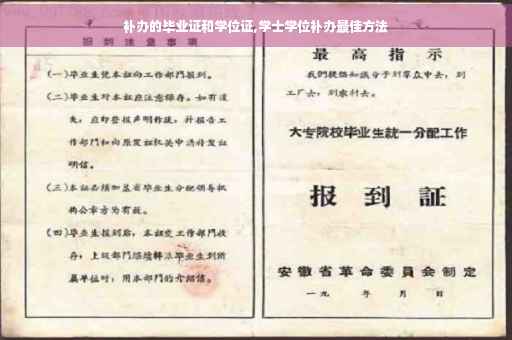 补办的毕业证和学位证,学士学位补办最佳方法
报到注意事项
(一)毕业生凭本证向工作部门报到。
(二)毕业生对本证应注意保存。如有遗
失,应即登报声明作废,并报告工
作部门和向原发证机关申请补发证
明信。
(三)本证必须加盖省毕业生分配领导机
构公章方为有效。
(四)毕业生报到后,本证交工作部门收
存;上级部门继续转派毕业生到所
属单位时,用本部门的介绍信。
最高指示
我们提倡知识分子到群众中去,到
工厂去,到农村去。
大专院校毕业生統一分配工作
报到証
安徽省革命委員会制定
一九 年 月 日